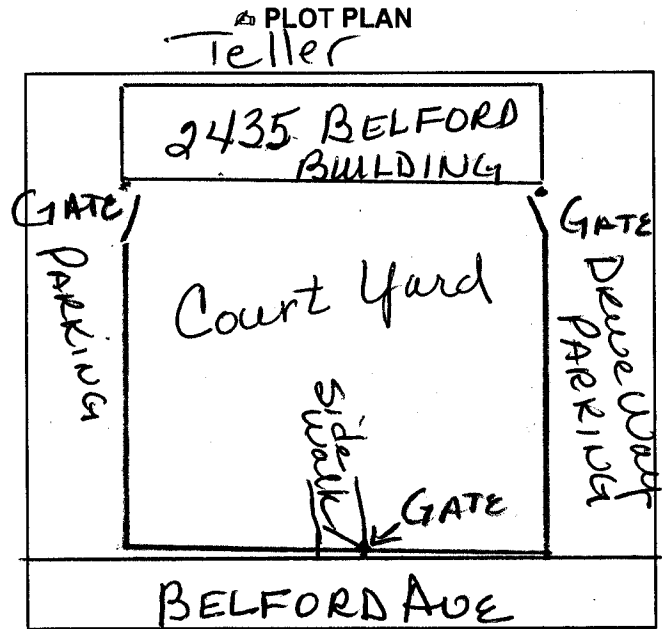 PLOT PLAN
Teller
2435 BELFORD
BUILDING
GATE
GATE
PARKING
Court Yard
DriveWay
PARKING
Side
Walk
GATE
BELFORD AVE